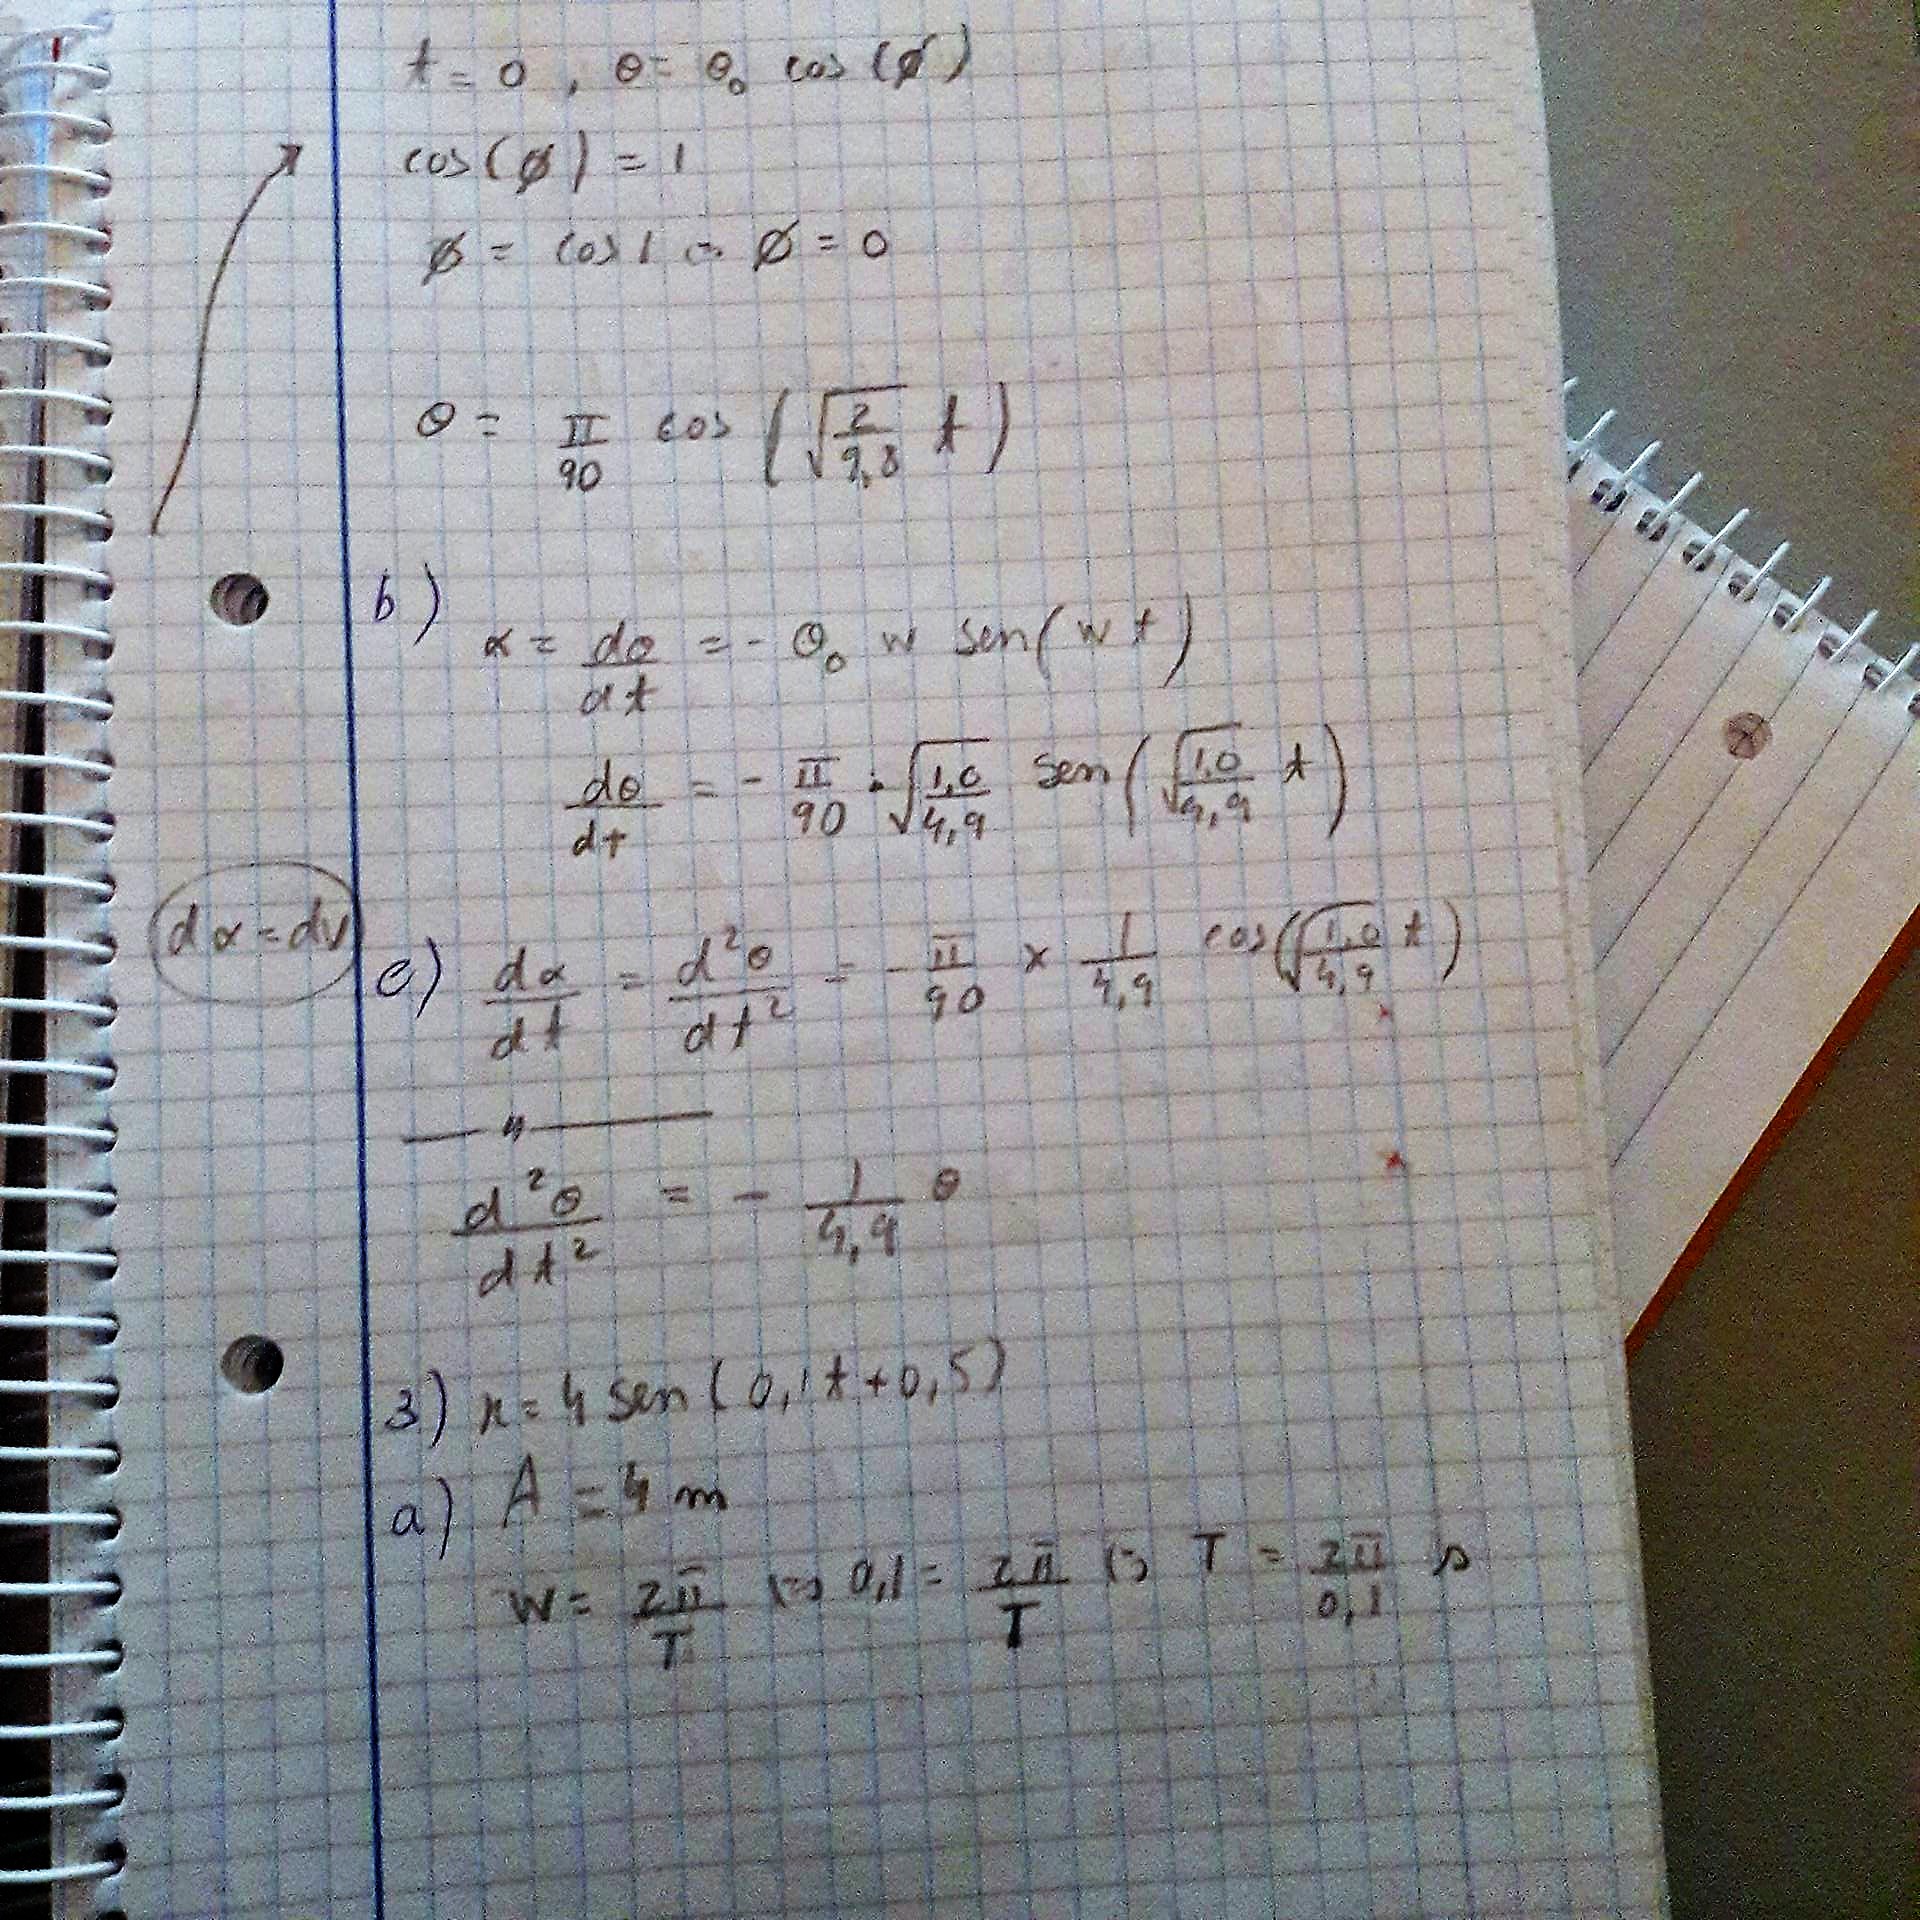 t = 0 , θ = θ₀ cos (ø)
cos (ø) = 1
ø = cos 1 ⇔ ø = 0
θ = π/90 cos (√(2/9,8) t)
b)
α = dθ/dt = - θ₀ w sen (w t)
dθ/dt = - π/90 . √(1,0/4,9) sen (√(1,0/4,9) t)
dα = dv
c) dα/dt = d²θ/dt² = - π/90 × 1/4,9 cos (√(1,0/4,9) t)
— " —
d²θ/dt² = - 1/4,9 θ
3) x = 4 sen (0,1 t + 0,5)
a) A = 4 m
w = 2π/T ⇔ 0,1 = 2π/T ⇔ T = 2π/0,1 s